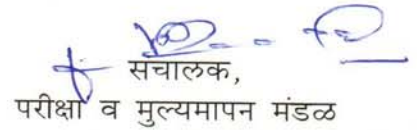 संचालक,
परीक्षा व मुल्यमापन मंडळ